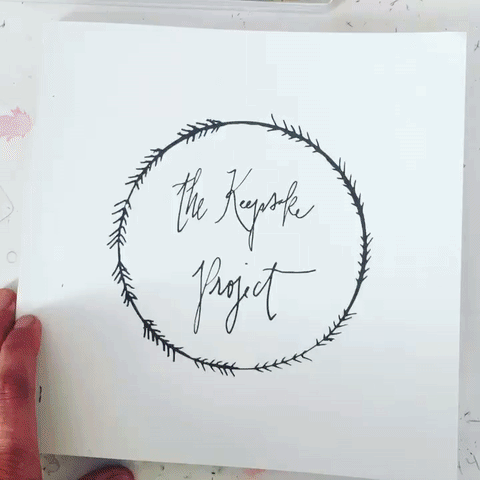 the Keepsake
Project